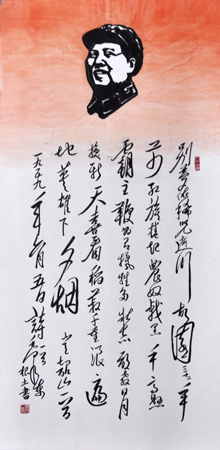 别梦依稀咒逝川 故園三十二年
前 红旗捲起農奴戟 黑手高懸
霸主鞭 为有犧牲多壮志 敢教日月
换新天 喜看稻菽千重浪 遍
地英雄下夕烟 韶山一首
一九五九年 詩 毛澤東 書